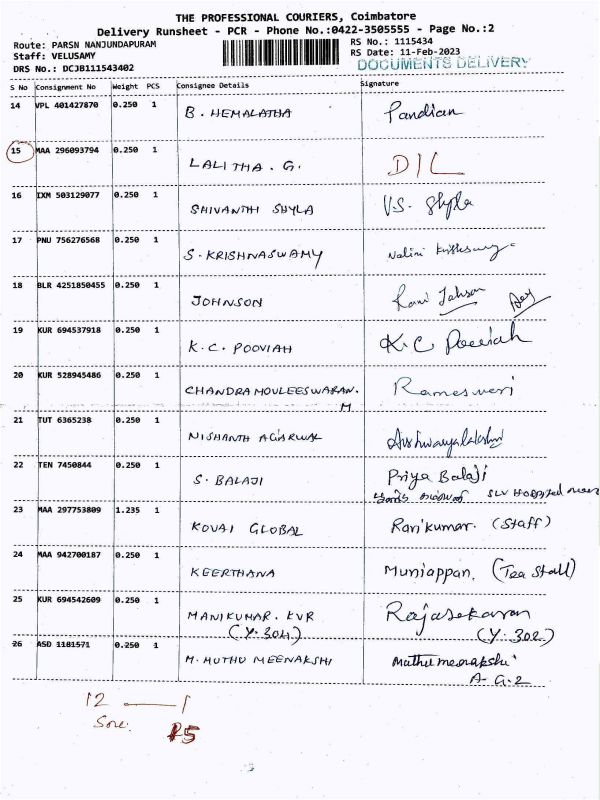 THE PROFESSIONAL COURIERS, Coimbatore
Delivery Runsheet - PCR - Phone No.:0422-3505555 - Page No.:2
Route: PARSN NANJUNDAPURAM
RS No.: 1115434
Staff: VELUSAMY
RS Date: 11-Feb-2023
DRS No.: DCJB111543402
DOCUMENTS DELIVERY
S No Consignment No Weight PCS Consignee Details Signature
14 VPL 401427870 0.250 1 B. HEMALATHA Pandian
15 MAA 296093794 0.250 1 LALITHA. G. D/L
16 IXM 503129077 0.250 1 SHIVANTHI SHYLA V.S. Shyla
17 PNU 756276568 0.250 1 S. KRISHNASWAMY Nalini Krishnaswamy
18 BLR 4251850455 0.250 1 JOHNSON Rani Johnson
19 KUR 694537918 0.250 1 K.C. POOVIAH K.C Pooviah
20 KUR 528945486 0.250 1 CHANDRAMOULEESWARAN. Rameswari
M
21 TUT 6365238 0.250 1 NISHANTH AGARWAL Aishwaryalakshmi
22 TEN 7450844 0.250 1 S. BALAJI Priya Balaji
SLV HOSPITAL near
23 MAA 297753809 1.235 1 KOVAI GLOBAL Ravikumar. (Staff)
24 MAA 942700187 0.250 1 KEERTHANA Muniappan. (Tea Stall)
25 KUR 694542609 0.250 1 MANIKUMAR. KVR Rajasekaran
(Y.304) (Y.302)
26 ASD 1181571 0.250 1 M. MUTHU MEENAKSHI Muthumeenakshi
A-G.2
12 — 1